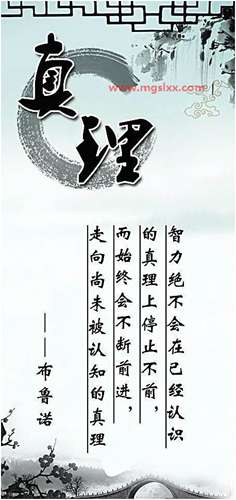 真理
www.mgslxx.com
智力绝不会在已经认识
的真理上停止不前，
而始终会不断前进，
走向尚未被认知的真理
——布鲁诺